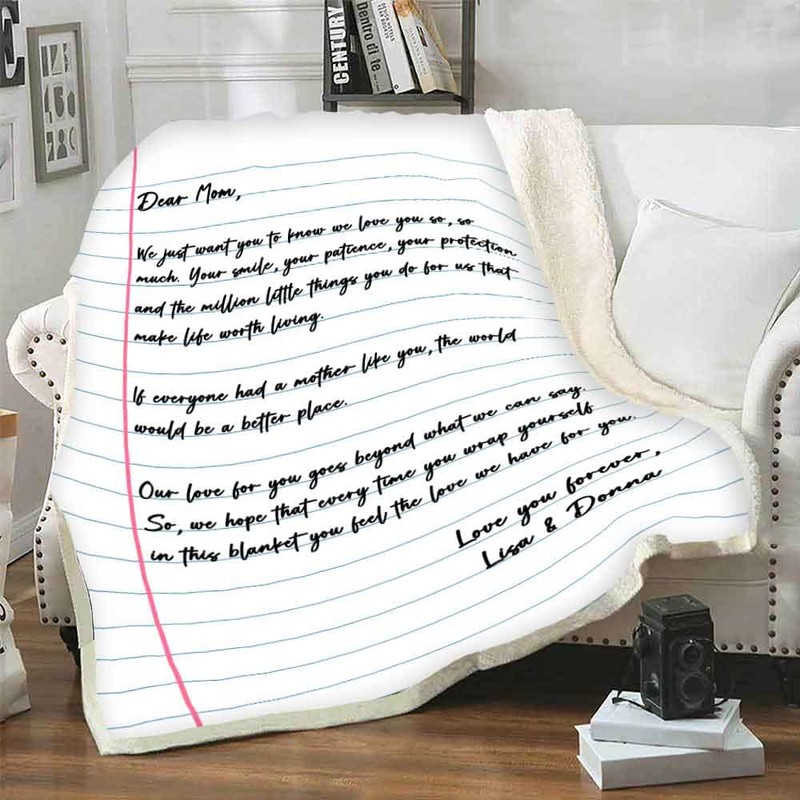 CENTURY
Dentro di te
Dear Mom,
We just want you to know we love you so, so
much. Your smile, your patience, your protection
and the million little things you do for us that
make life worth living.
If everyone had a mother like you, the world
would be a better place.
Our love for you goes beyond what we can say.
So, we hope that every time you wrap yourself
in this blanket you feel the love we have for you.
Love you forever,
Lisa & Donna